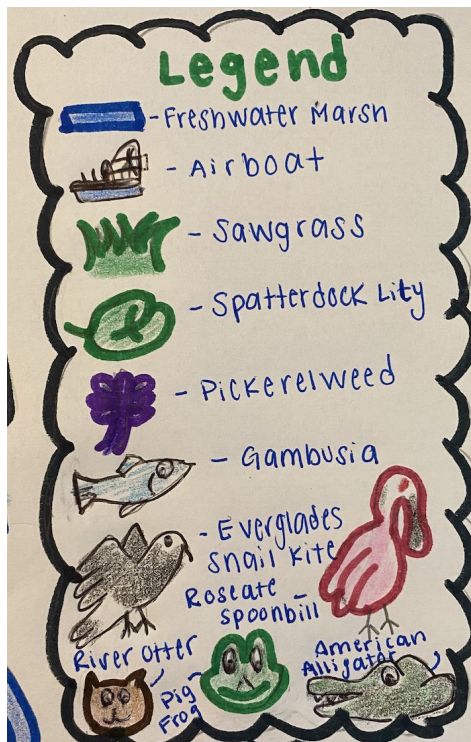 Legend
- Freshwater Marsh
- Airboat
- Sawgrass
- Spatterdock Lily
- Pickerelweed
- Gambusia
- Everglades
Snail Kite
Roseate -
Spoonbill
River Otter
Pig
Frog
American
Alligator